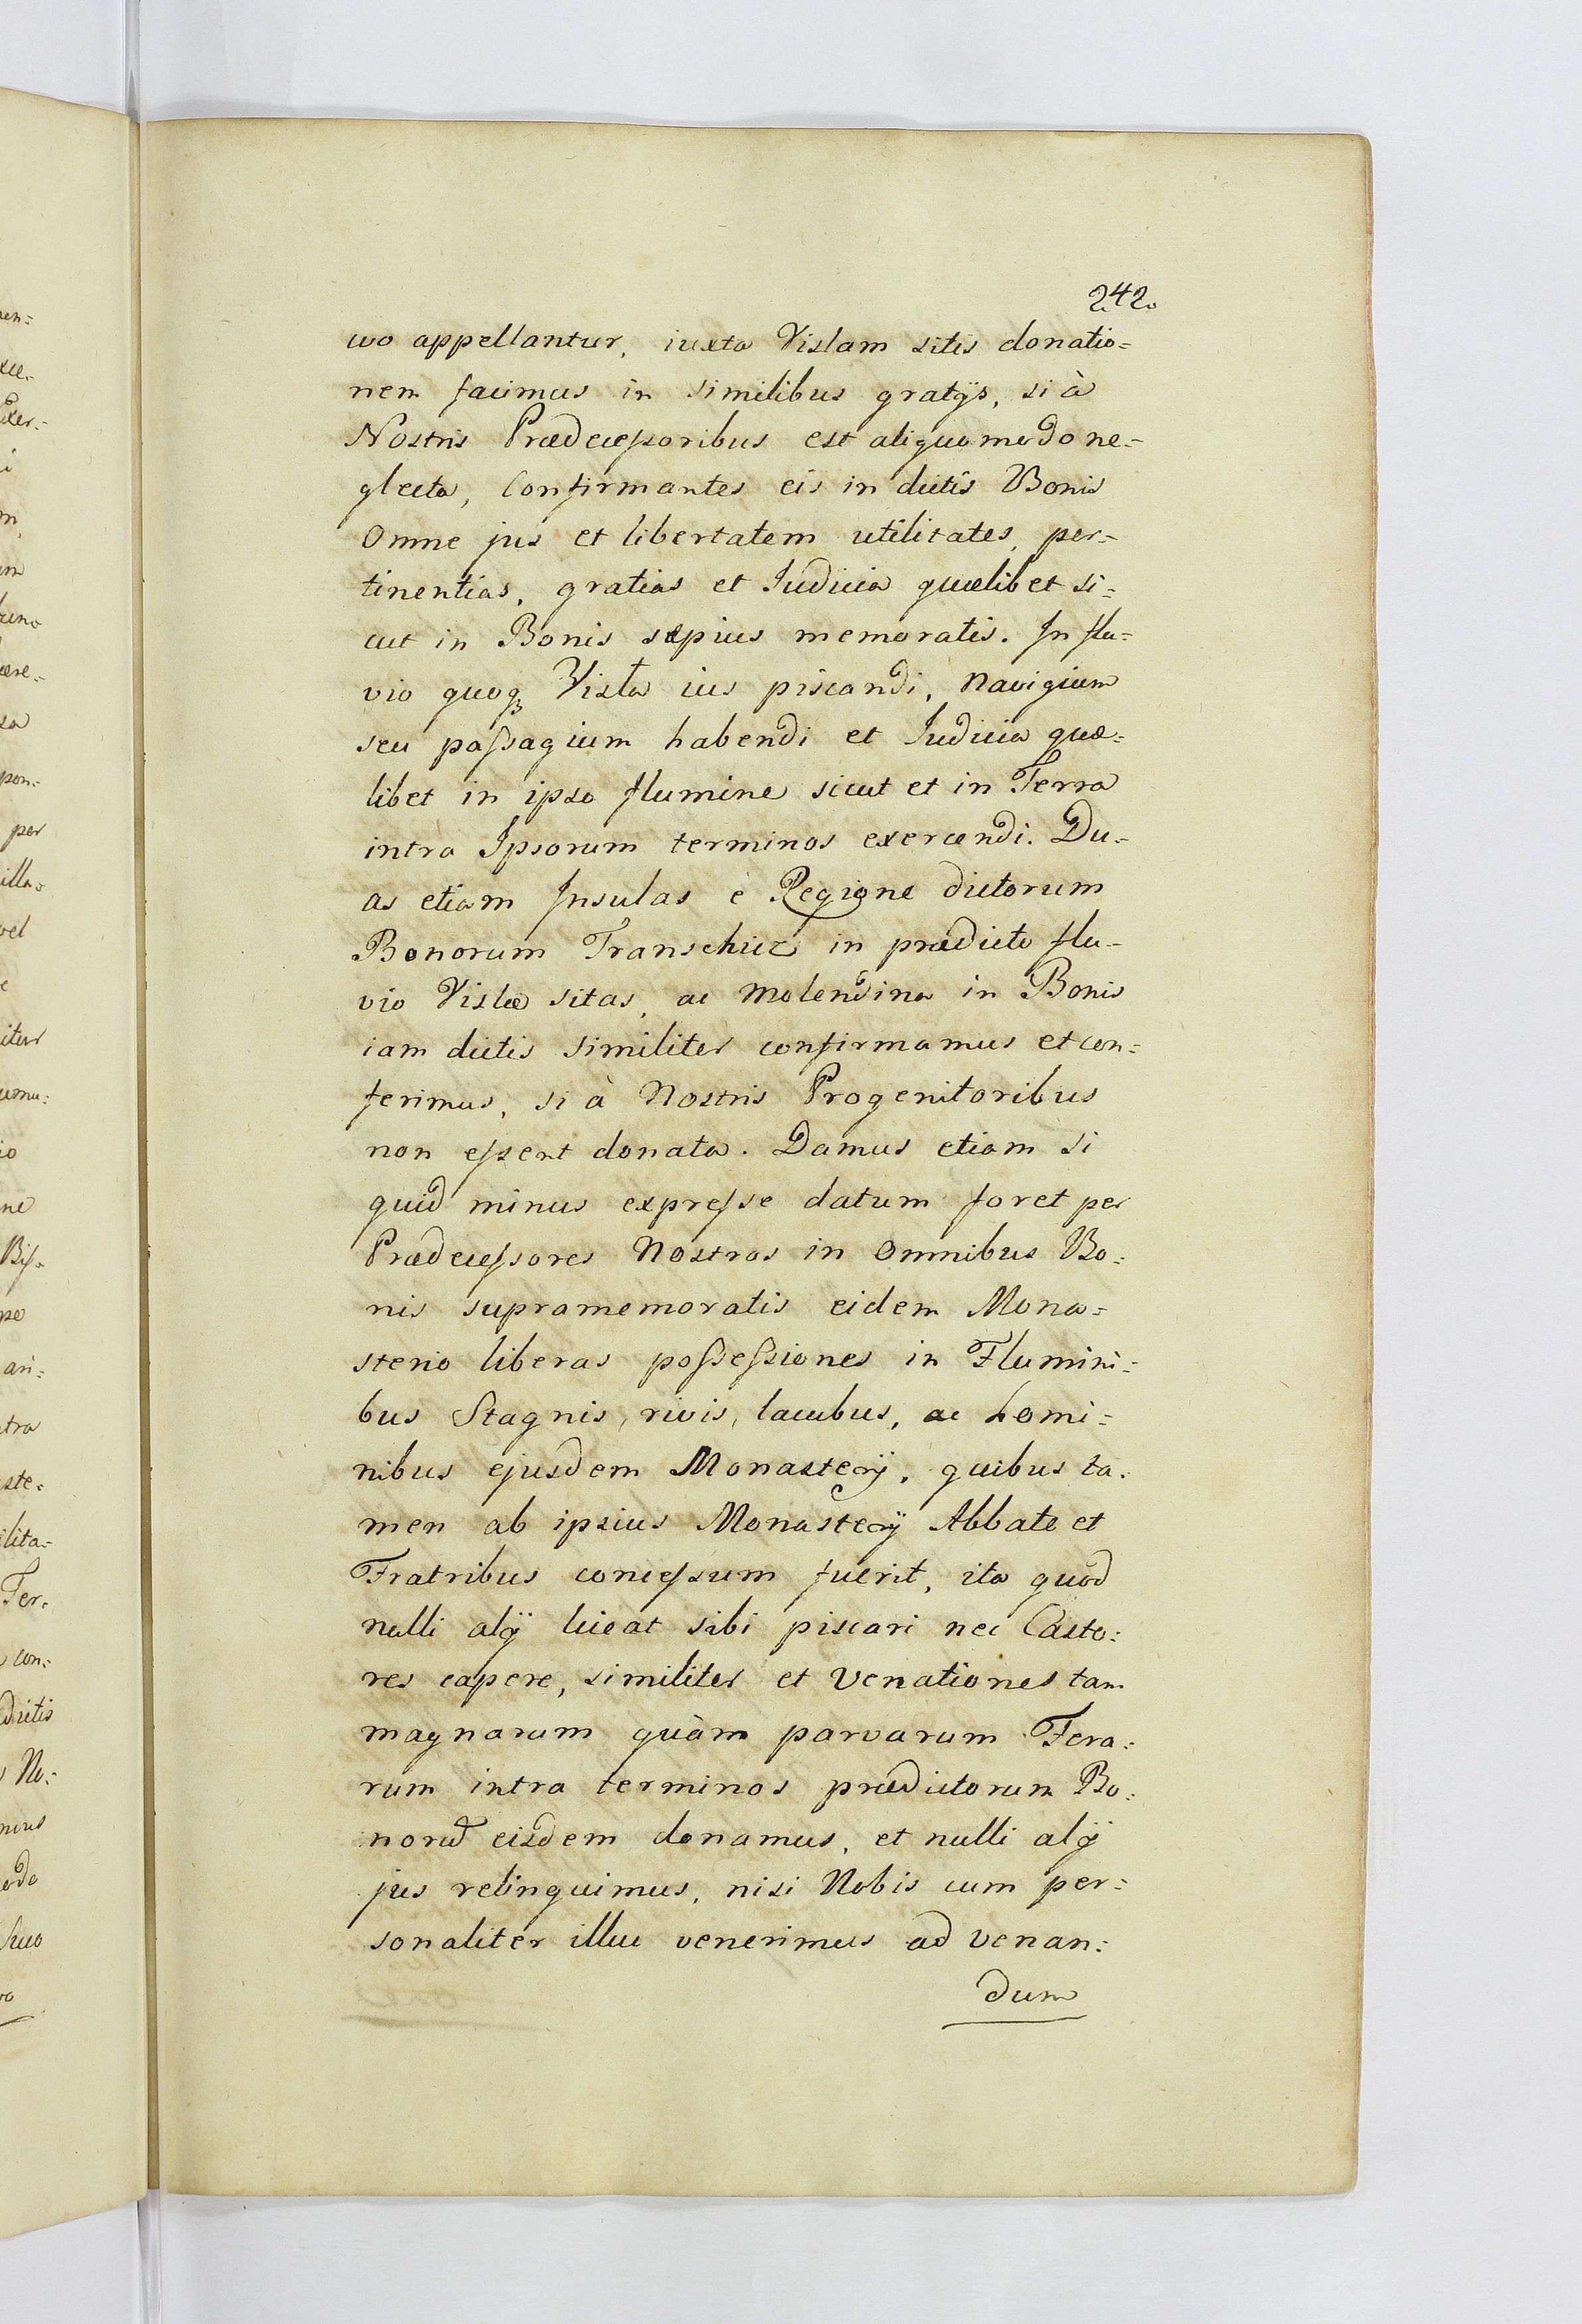 242.
wo appellantur, iuxta Vislam sitis donatio=
nem facimus in similibus gratijs, si à
Nostris Prædecessoribus est aliquomodo ne=
glecta, Confirmantes eis in dictis Bonis
Omne jus et libertatem utilitates, per=
tinentias, gratias et Iudicia quælibet si=
cut in Bonis sæpius memoratis. In flu=
vio quoqꝫ Visla ius piscandi, Navigium
seu passagium habendi et Iudicia quæ=
libet in ipso flumine sicut et in Terra
intra Ipsorum terminos exercendi. Du=
as etiam Insulas è Regione dictorum
Bonorum Transchicz in prædicto flu=
vio Vislæ sitas, ac Molendina in Bonis
iam dictis Similiter confirmamus et con=
ferimus, si à Nostris Progenitoribus
non essent donata. Damus etiam si
quid minus expresse datum foret per
Prædecessores Nostros in Omnibus Bo=
nis supramemoratis eidem Mona=
sterio liberas possessiones in Flumini=
bus Stagnis, rivis, lacubus, ac homi=
nibus ejusdem Monasterij, quibus ta=
men ab ipsius Monasterij Abbate et
Fratribus concessum fuerit, ita quod
nulli alij liceat sibi piscari nec Casto=
res capere, similiter et Venationes tam
magnarum quàm parvarum Fera=
rum intra terminos prædictorum Bo=
norũ eisdem donamus, et nulli alij
jus relinquimus, nisi Nobis cum per=
sonaliter illuc venerimus ad venan=
dum